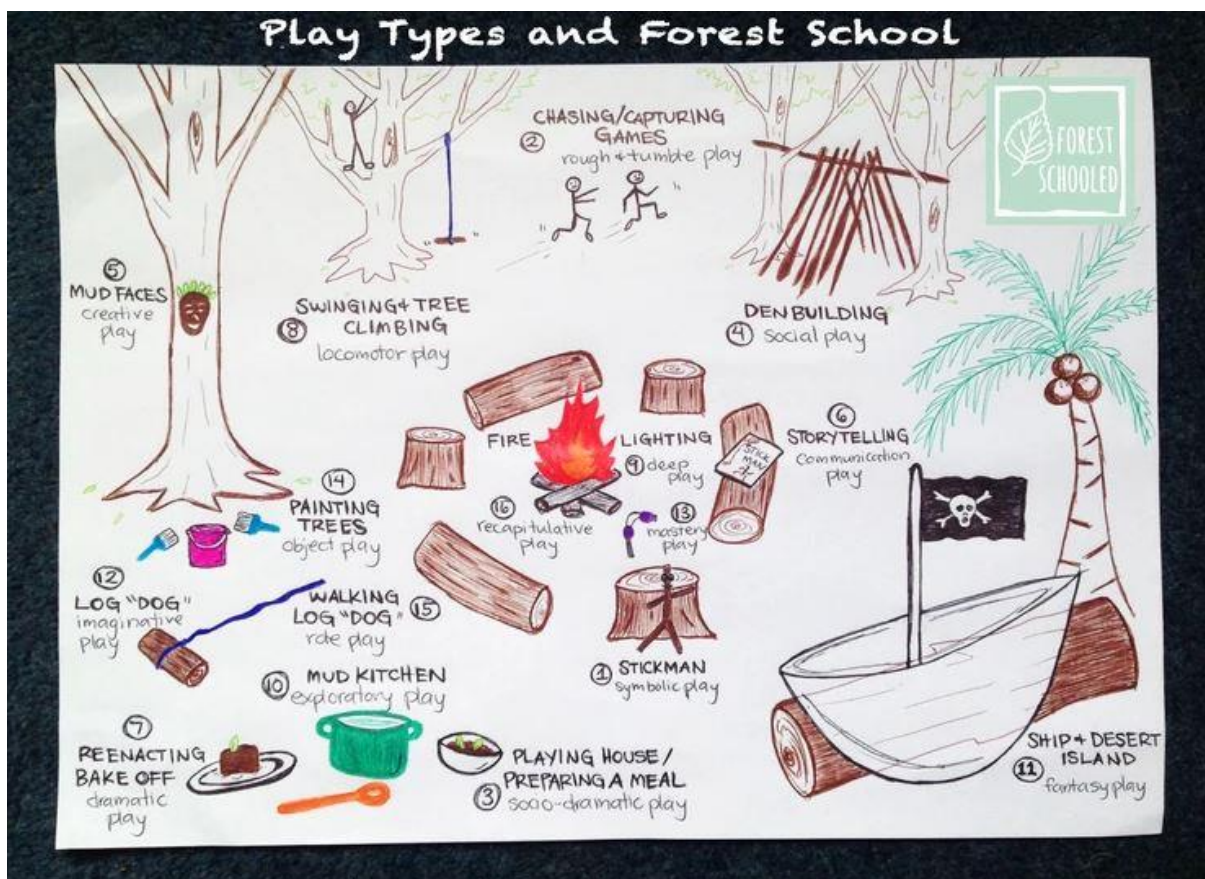 Play Types and Forest School
FOREST
SCHOOLED
CHASING/CAPTURING
② GAMES
rough & tumble play
⑤
MUD FACES
creative
play
SWINGING & TREE
⑧ CLIMBING
locomotor play
DEN BUILDING
④ social play
FIRE LIGHTING
⑨ deep
play
STICK
MAN
⑥
STORYTELLING
communication
play
⑭
PAINTING
TREES
object play
⑯
recapitulative
play
⑬
mastery
play
⑫
LOG "DOG"
imaginative
play
WALKING
LOG "DOG" ⑮
role play
① STICKMAN
symbolic play
⑩ MUD KITCHEN
exploratory play
⑦
REENACTING
BAKE OFF
dramatic
play
PLAYING HOUSE/
PREPARING A MEAL
③ socio-dramatic play
SHIP & DESERT
ISLAND
⑪ fantasy play